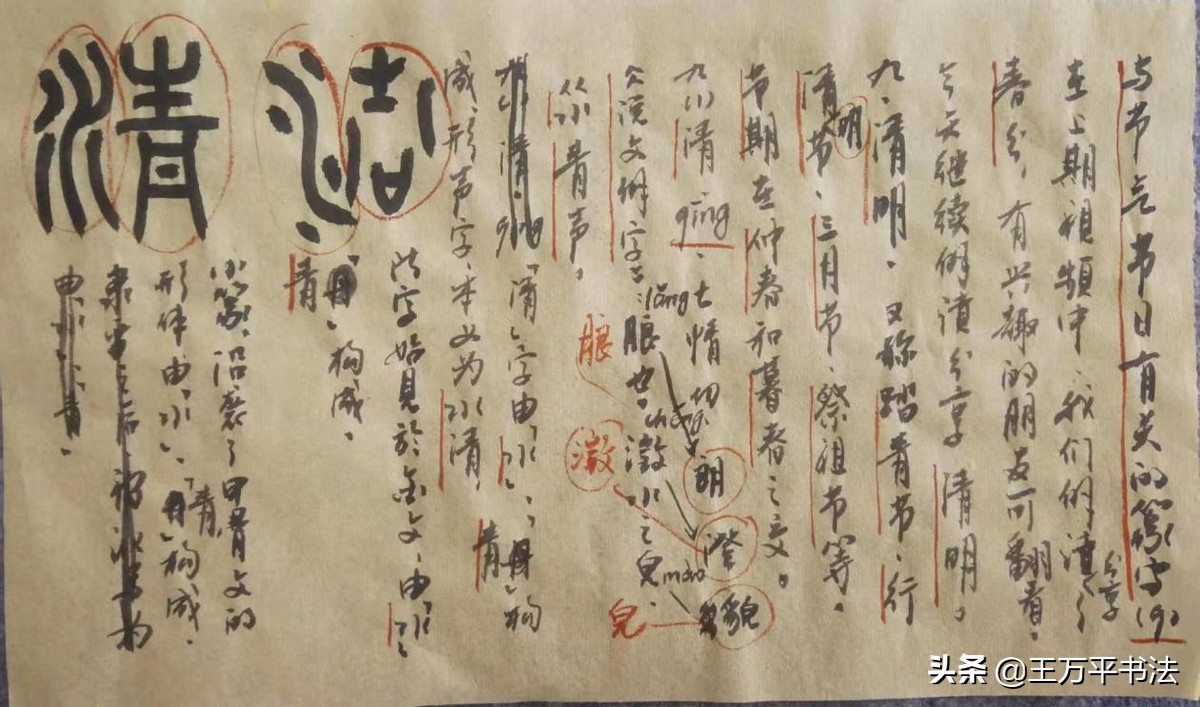 与节气节日有关的篆字(9)
在上期视频中、我们解读分享了
春分，有兴趣的朋友可翻看。
今天继续解读分享 清明。
九、清明。又称踏青节、行
清明节、三月节、祭祖节等。
节期在仲春和暮春之交。
九(1)清 qīng、七情切
《说文解字》:朖也。澂水之皃。
lǎng
chéng
mào
朖
朗
澂
澄
皃
貌
从水青声。
「清」字由「水」、「青」构
成、形声字、本义为水清。
此字始见於金文、由「水」
「青」构成。
小篆、沿袭了甲骨文的
形体由「水」、「青」构成。
清
清
头条 @王万平书法